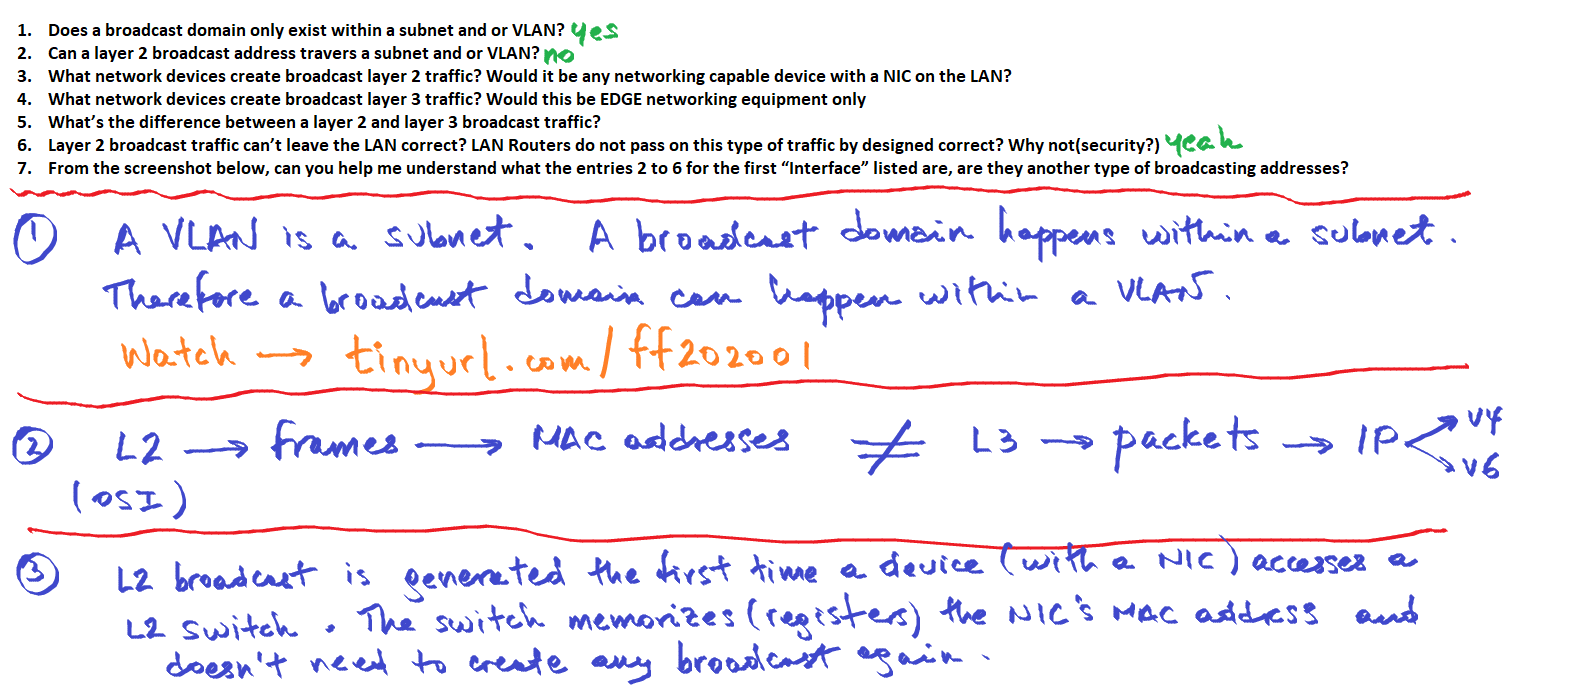 1. Does a broadcast domain only exist within a subnet and or VLAN? yes
2. Can a layer 2 broadcast address travers a subnet and or VLAN? no
3. What network devices create broadcast layer 2 traffic? Would it be any networking capable device with a NIC on the LAN?
4. What network devices create broadcast layer 3 traffic? Would this be EDGE networking equipment only
5. What's the difference between a layer 2 and layer 3 broadcast traffic?
6. Layer 2 broadcast traffic can't leave the LAN correct? LAN Routers do not pass on this type of traffic by designed correct? Why not(security?) yeah
7. From the screenshot below, can you help me understand what the entries 2 to 6 for the first “Interface” listed are, are they another type of broadcasting addresses?
1 A VLAN is a subnet. A broadcast domain happens within a subnet.
Therefore a broadcast domain can happen within a VLAN.
Watch → tinyurl.com/ff202001
2 L2 → frames → MAC addresses ≠ L3 → packets → IP v4
v6
(OSI)
3 L2 broadcast is generated the first time a device (with a NIC) accesses a
L2 switch. The switch memorizes (registers) the NIC's MAC address and
doesn't need to create any broadcast again.